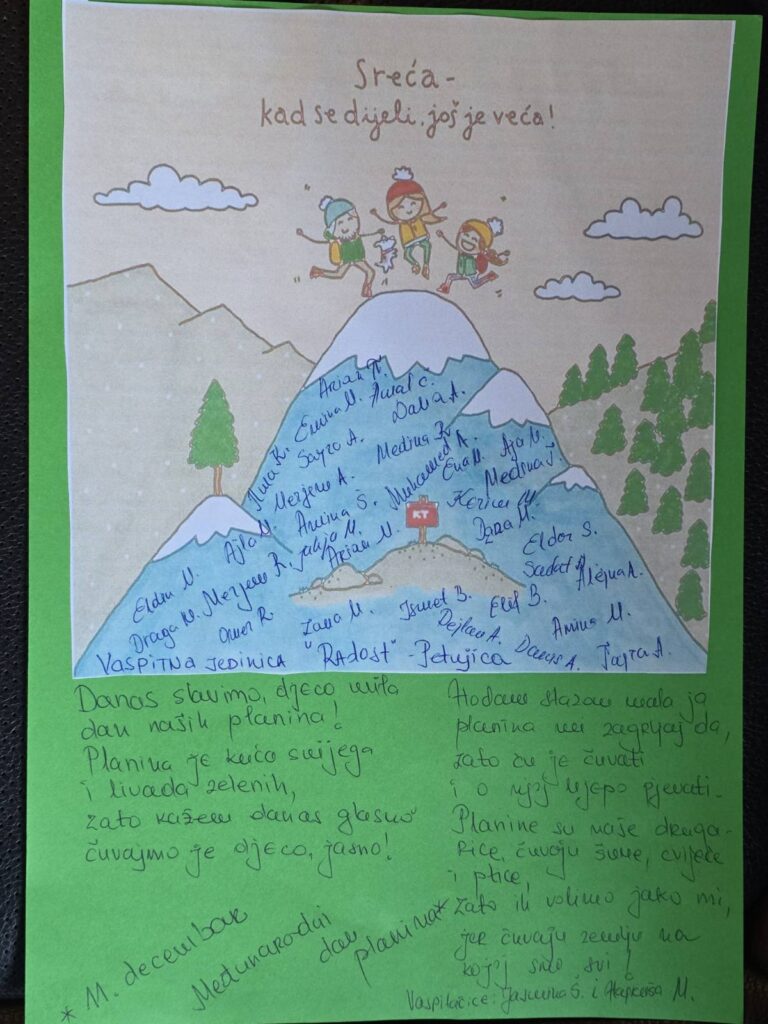 Sreća -
kad se dijeli, još je veća!
Arian T.
Emina M. Amal C.
Ilma K. Sajro A. Dalia A.
Merjem A. Medina K.
Ajla M. Amina S. Muhamed A. Ema M. Aja M.
Medina T.
Jahja M. Kerim M.
Arian M. KT Dzana M.
Eldin N. Merjem R. Eldor S.
Draga N. Omer R. Sadat
Zana M. Ismet B. Elif B. Amina M.
Dejlan A. Danis A. Tajra A.
VASPITNA JEDINICA "RADOST" - Petnjica
Danas slavimo, djeco mila
dan naših planina!
Planina je kuća snijega
i livada zelenih,
zato kažem danas glasno
čuvajmo je djeco, jasno!
Hodam stazom mala ja
planina mi zagrljaj da,
zato ću je čuvati
i o njoj lijepo pjevati.
Planine su naše druga-
rice, čuvaju šume, cvijeće
i ptice,
zato ih volimo jako mi,
jer čuvaju zemlju na
kojoj smo svi!
* 11. decembar
Međunarodni
dan
planina*
Vaspitačice: Jasmina Š. i M.